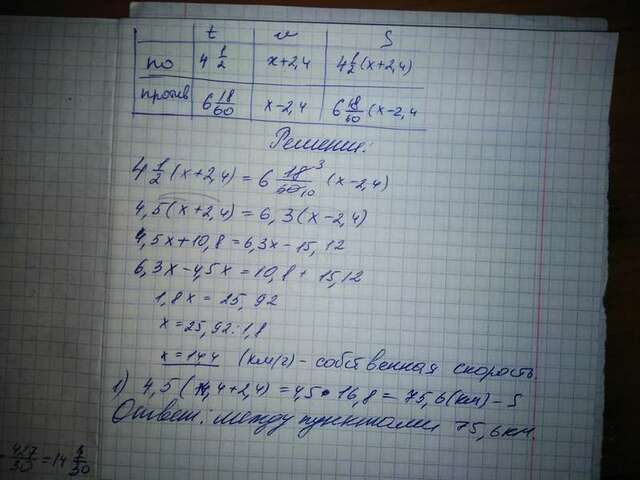 t v S
по 4 1/2 x+2,4 4 1/2 (x+2,4)
против 6 18/60 x-2,4 6 18/60 (x-2,4
Решение:
4 1/2 (x+2,4) = 6 18/60 3/10 (x-2,4)
4,5(x+2,4) = 6,3(x-2,4)
4,5x+10,8=6,3x-15,12
6,3x-4,5x=10,8+15,12
1,8x = 25,92
x=25,92:1,8
x=14,4 (км/г) - собственная скорость.
1) 4,5(14,4+2,4) = 4,5·16,8 = 75,6(км) - S
Ответ. между пунктами 75,6км.
427/30 = 14